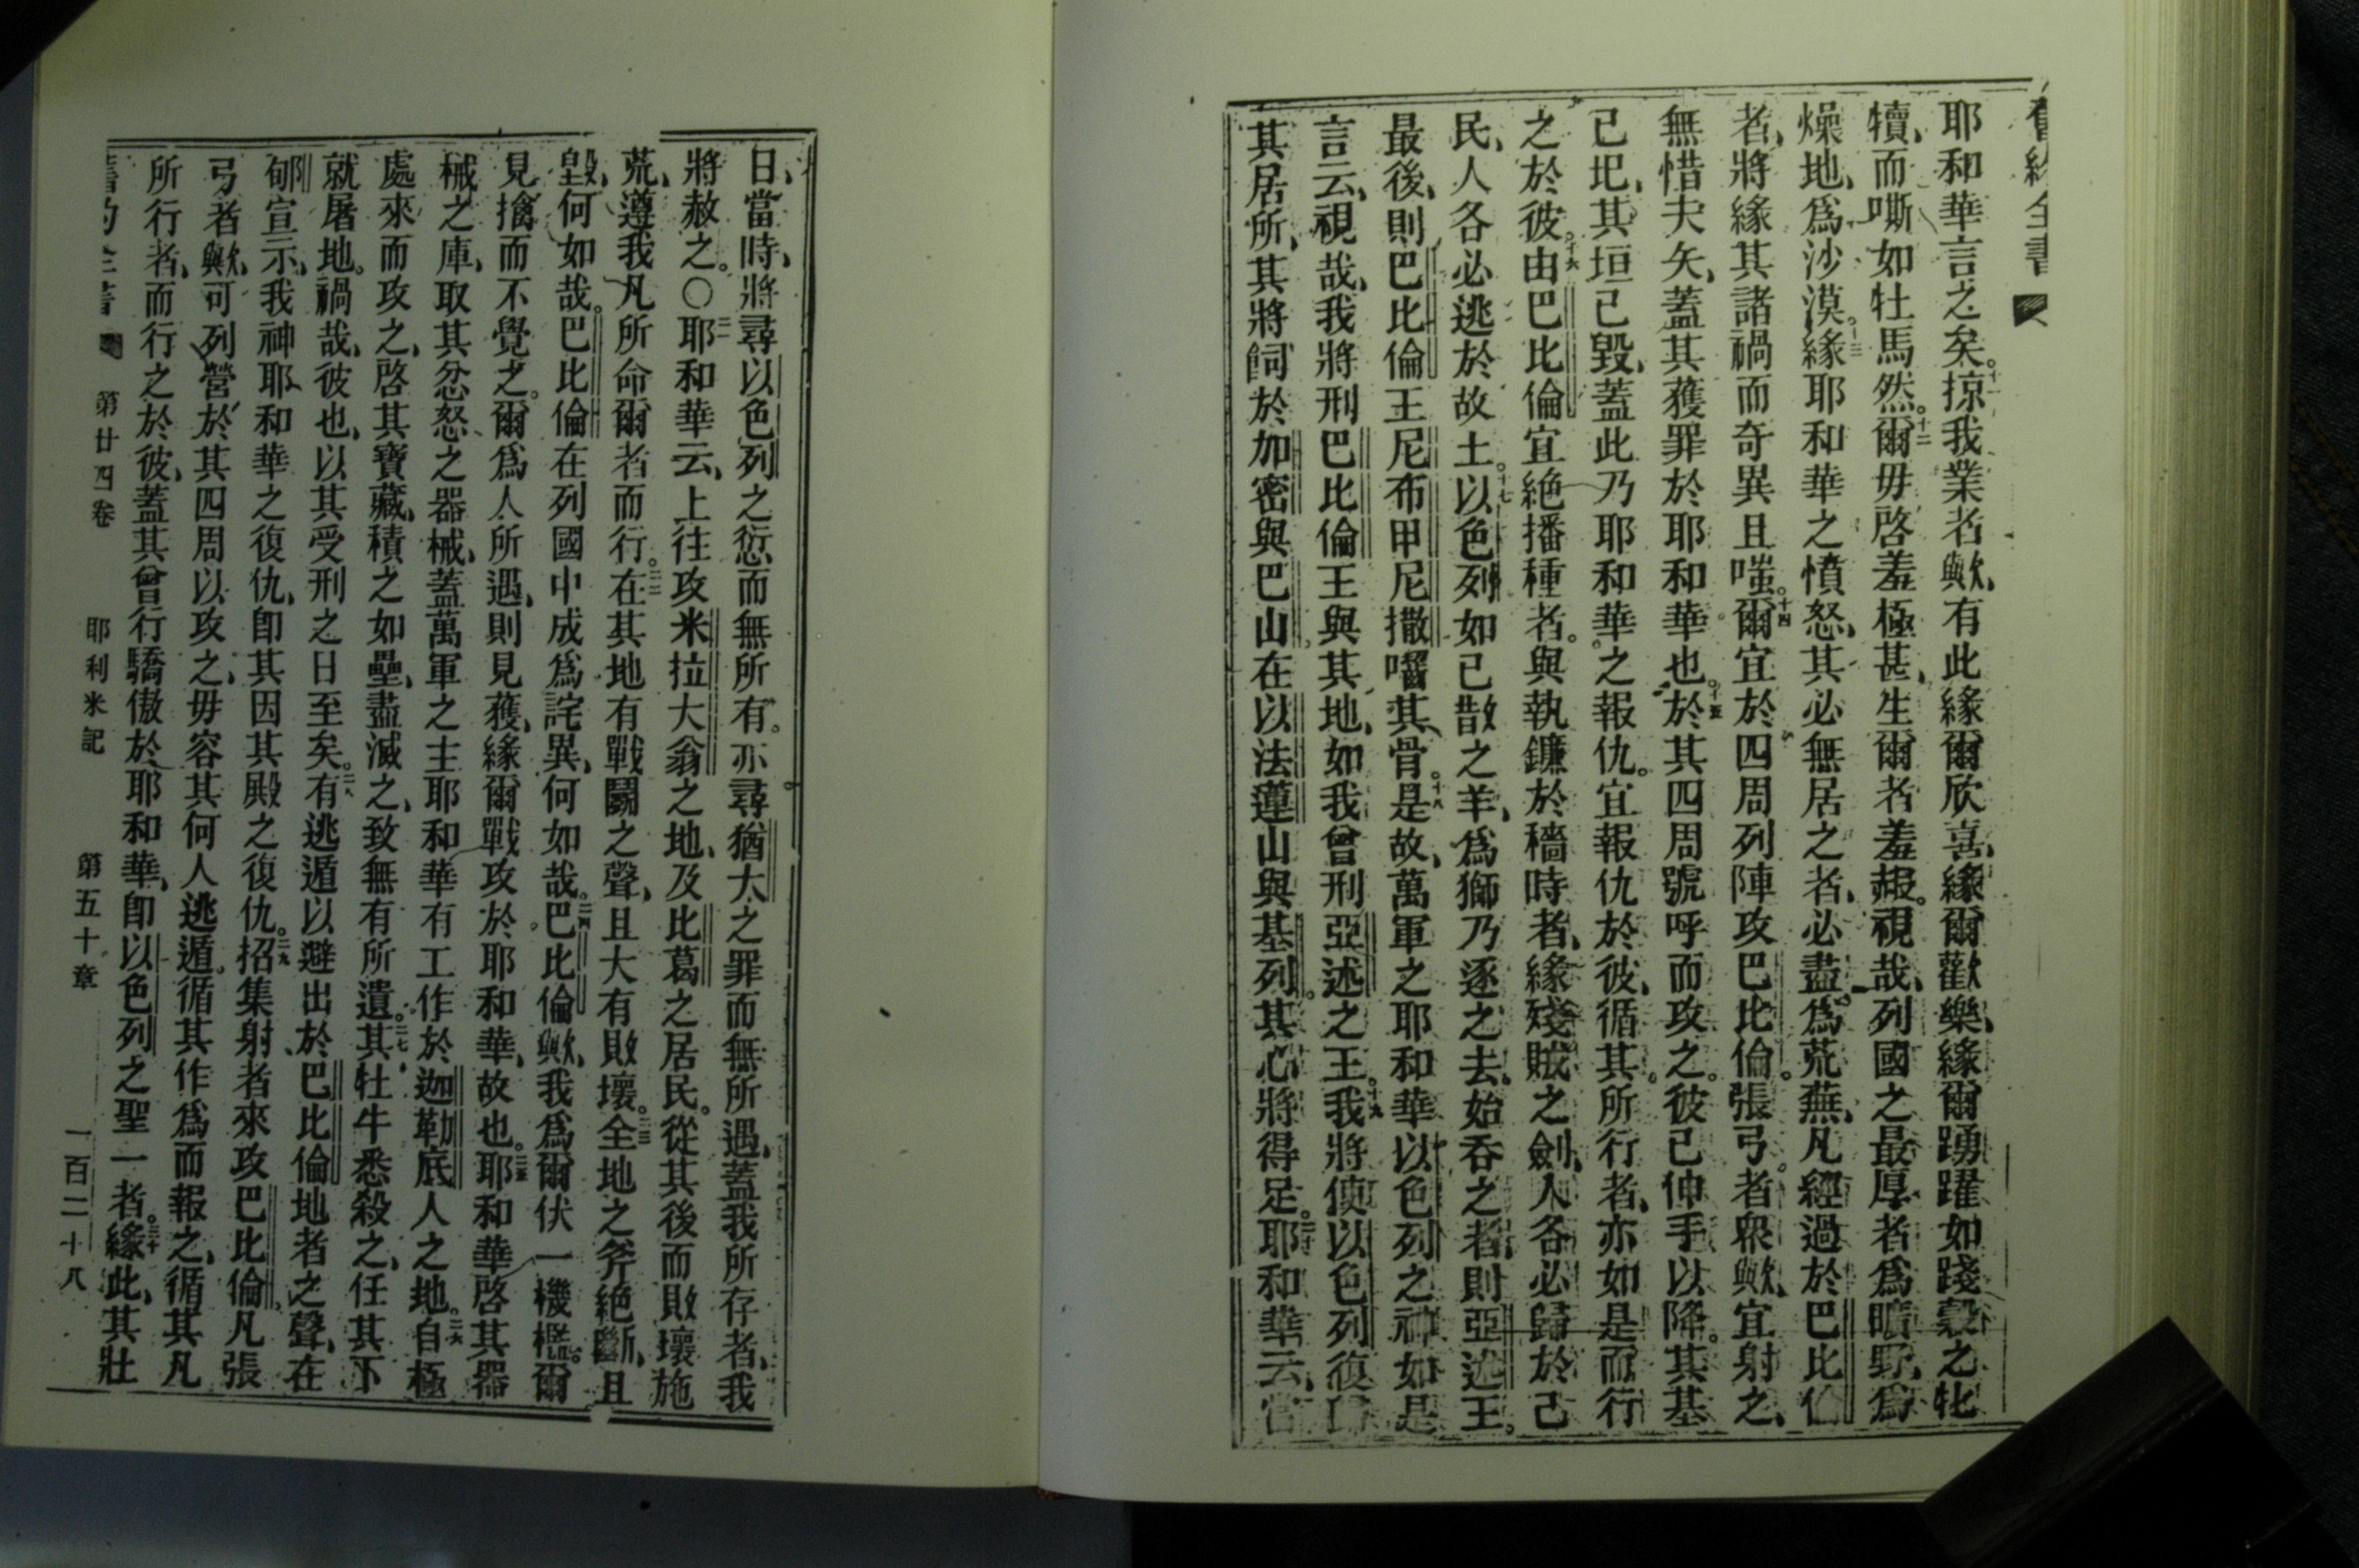 舊約全書
耶和華言之矣。十一掠我業者歟、有此緣爾欣喜、緣爾歡樂、緣爾踴躍如踐穀之牝
犢、而嘶如牡馬然。十二爾毋啓羞極甚、生爾者羞赧。視哉、列國之最厚者爲曠野、爲
燥地、爲沙漠。十三緣耶和華之憤怒、其必無居之者、必盡爲荒蕪、凡經過於巴比倫
者、將緣其諸禍而奇異且嗤。十四爾宜於四周列陣攻巴比倫。張弓者衆歟、宜射之、
無惜夫矢、蓋其獲罪於耶和華也。十五於其四周號呼而攻之。彼已伸手以降。其基
已圯、其垣已毀、蓋此乃耶和華之報仇。宜報仇於彼、循其所行者、亦如是而行
之於彼。十六由巴比倫宜絕播種者。與執鐮於穡時者、緣殘賊之劍、人各必歸於己
民、人各必逃於故土。十七以色列如已散之羊、爲獅乃逐之去、始吞之者、則亞述王。
最後、則巴比倫王尼布甲尼撒嚙其骨。十八是故、萬軍之耶和華以色列之神如是
言云、視哉、我將刑巴比倫王與其地、如我曾刑亞述之王。十九我將使以色列復
其居所、其將飼於加密與巴山在以法蓮山與基列。其心將得足。二十耶和華云、當
日、當時、將尋以色列之愆而無所有。亦尋猶大之罪而無所遇、蓋我所存者、我
將赦之。○二一耶和華云、上往攻米拉大翁之地、及比葛之居民。從其後而敗壞施
荒、遵我凡所命爾者而行。二二在其地有戰鬭之聲、且大有敗壞。二三全地之斧絕斷、且
毀、何如哉。巴比倫在列國中成爲詫異、何如哉。二四巴比倫歟、我爲爾伏一機檻。爾
見擒而不覺之。爾爲人所遇、則見獲、緣爾戰攻於耶和華、故也。二五耶和華啓其器
械之庫、取其忿怒之器械、蓋萬軍之主耶和華有工作於迦勒底人之地。二六自極
處來而攻之、啓其寶藏、積之如壘、盡滅之、致無有所遺。二七其牡牛悉殺之、任其下
就屠地。禍哉、彼也、以其受刑之日至矣。二八有逃遁以避出於巴比倫地者之聲、在
郇宣示、我神耶和華之復仇、卽其因其殿之復仇。二九招集射者來攻巴比倫。凡張
弓者歟、可列營於其四周以攻之、毋容其何人逃遁。循其作爲而報之、循其凡
所行者、而行之於彼、蓋其曾行驕傲於耶和華、卽以色列之聖一者。三十緣此、其壯
舊約全書 第廿四卷 耶利米記 第五十章 一百二十八